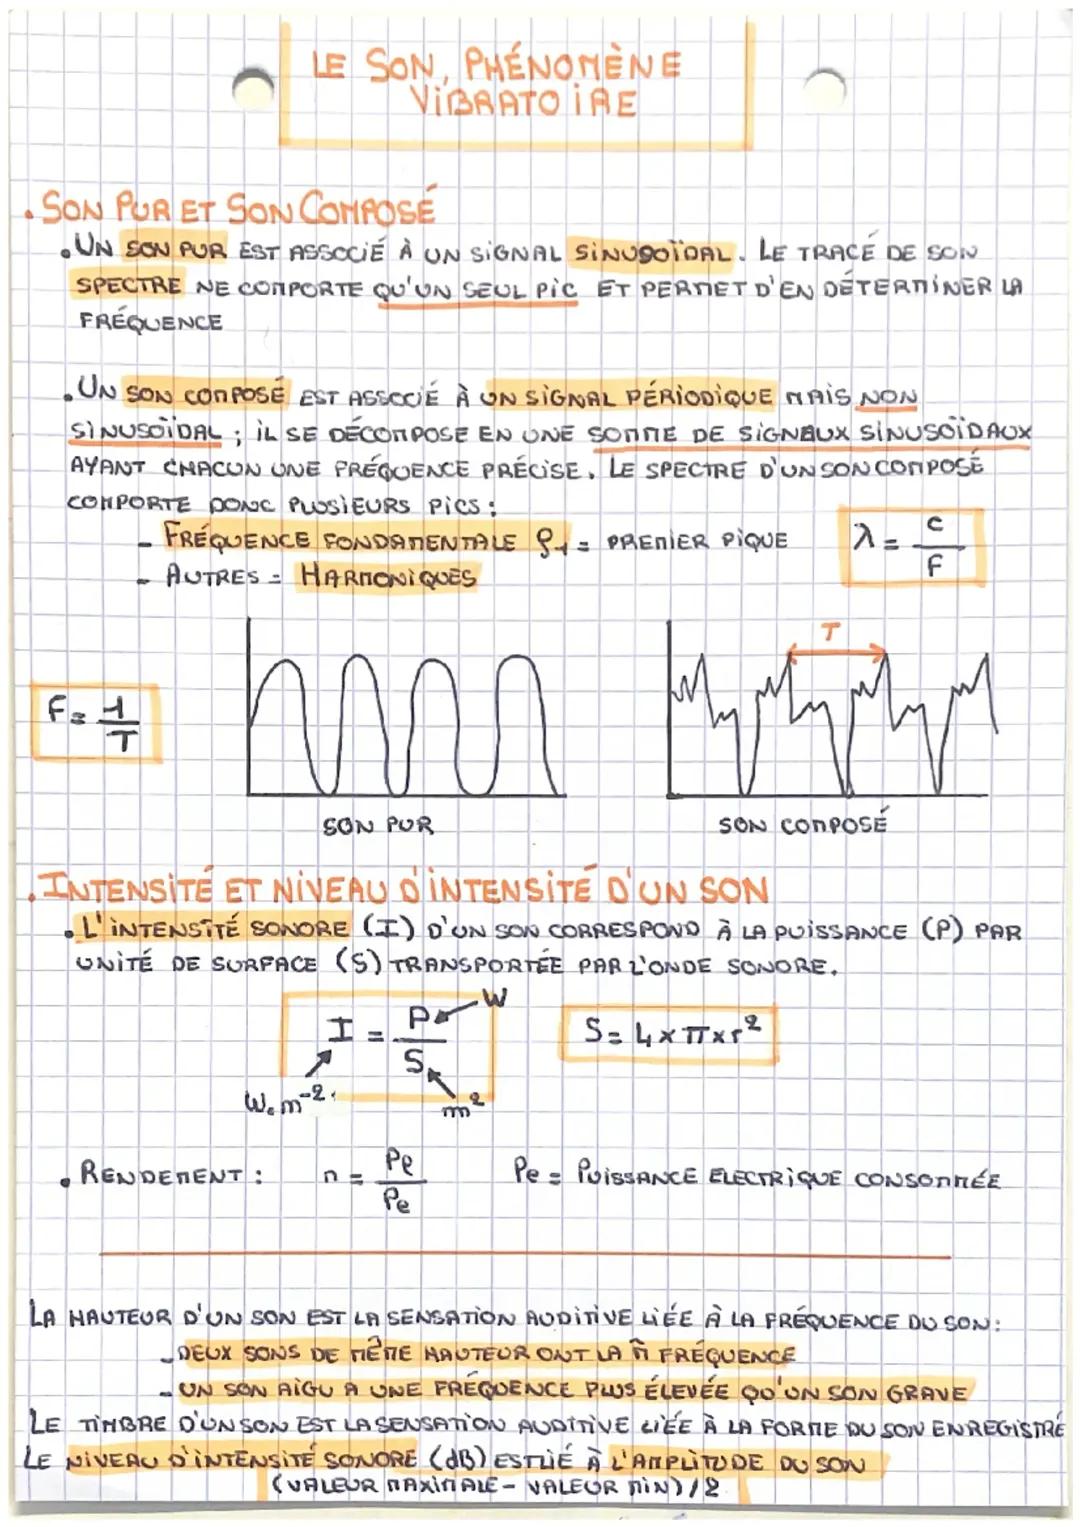 LE SON, PHÉNOMÈNE
VIBRATOIRE
. SON PUR ET SON COMPOSÉ
. UN SON PUR EST ASSOCIÉ À UN SIGNAL SINUSOÏDAL. LE TRACÉ DE SON
SPECTRE NE COMPORTE QU'UN SEUL PIC ET PERMET D'EN DÉTERMINER LA
FRÉQUENCE
. UN SON COMPOSÉ EST ASSOCIÉ À UN SIGNAL PÉRIODIQUE MAIS NON
SINUSOÏDAL ; IL SE DÉCOMPOSE EN UNE SOMME DE SIGNAUX SINUSOÏDAUX
AYANT CHACUN UNE FRÉQUENCE PRÉCISE. LE SPECTRE D'UN SON COMPOSÉ
COMPORTE DONC PLUSIEURS PICS :
- FRÉQUENCE FONDAMENTALE f1 = PREMIER PIQUE
λ = c / F
- AUTRES = HARMONIQUES
T
F = 1 / T
SON PUR
SON COMPOSÉ
. INTENSITÉ ET NIVEAU D'INTENSITÉ D'UN SON
. L'INTENSITÉ SONORE (I) D'UN SON CORRESPOND À LA PUISSANCE (P) PAR
UNITÉ DE SURFACE (S) TRANSPORTÉE PAR L'ONDE SONORE.
I = P / S
W
S = 4 x π x r²
W.m⁻²
m²
. RENDEMENT : n = Pe / Pe
Pe = PUISSANCE ELECTRIQUE CONSOMMÉE
LA HAUTEUR D'UN SON EST LA SENSATION AUDITIVE LIÉE À LA FRÉQUENCE DU SON :
- DEUX SONS DE MÊME HAUTEUR ONT LA m̂ FRÉQUENCE
- UN SON AIGU A UNE FRÉQUENCE PLUS ÉLEVÉE QU'UN SON GRAVE
LE TIMBRE D'UN SON EST LA SENSATION AUDITIVE LIÉE À LA FORME DU SON ENREGISTRÉ
LE NIVEAU D'INTENSITÉ SONORE (dB) EST LIÉ À L'AMPLITUDE DU SON
(VALEUR MAXIMALE - VALEUR MIN) / 2